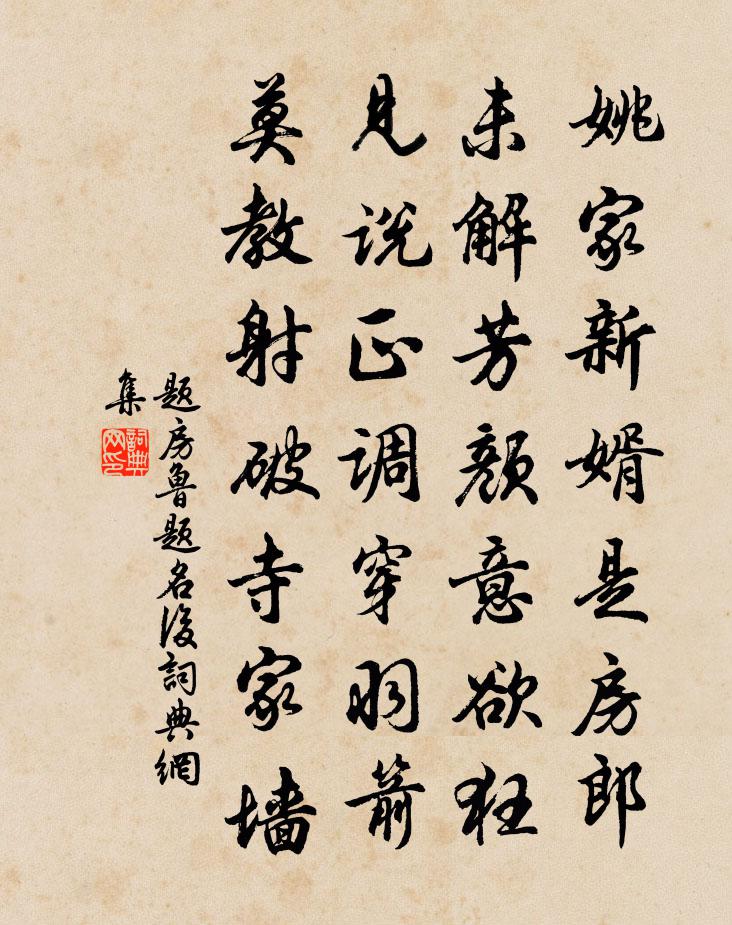 姚家新婿是房郎
未解芳颜意欲狂
见说正调穿羽箭
莫教射破寺家墙
题房鲁题名后詞典網
集
詞典
网印